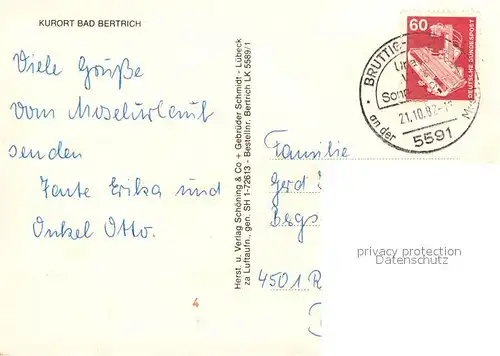 KURORT BAD BERTRICH
Viele Grüße
vom Moselurlaub
senden
Tante Erika und
Onkel Otto.
4
Herst. u. Verlag Schöning & Co + Gebrüder Schmidt - Lübeck
za Luftaufn., gen. SH 1-72613 - Bestellnr. Bertrich LK 5589/1
60
DEUTSCHE BUNDESPOST
BRUTTIG-
Son
21.10.82-1
an der
5591
Familie
Gerd
Bergs
4501
privacy protection
Datenschutz